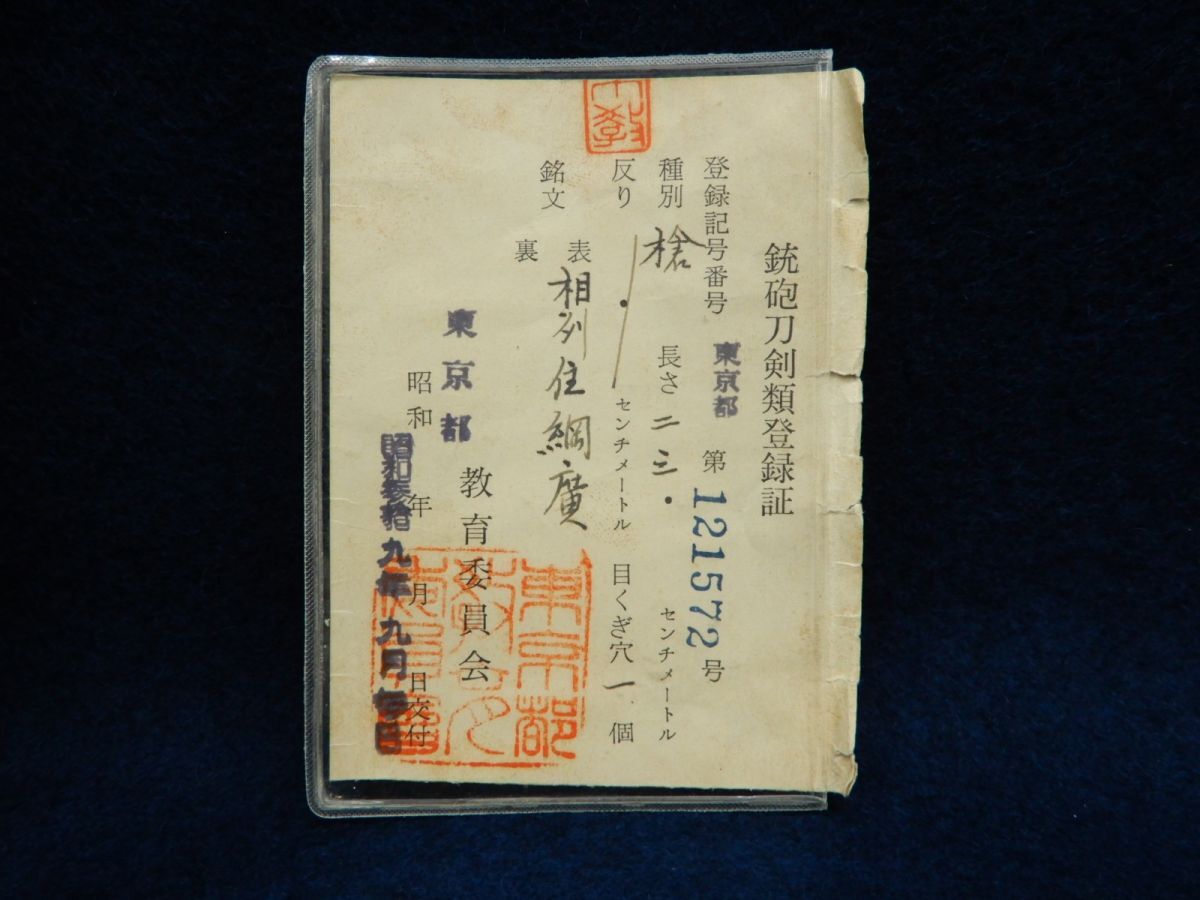 銃砲刀剣類登録証
登録記号番号 東京都 第121572号
種別 槍 長さ 二三・ センチメートル
反り ・ センチメートル 目くぎ穴 一 個
銘文 表 相州住綱廣
裏
東京都 教育委員会
昭和 年 月 日交付
昭和参拾九年九月
東京都